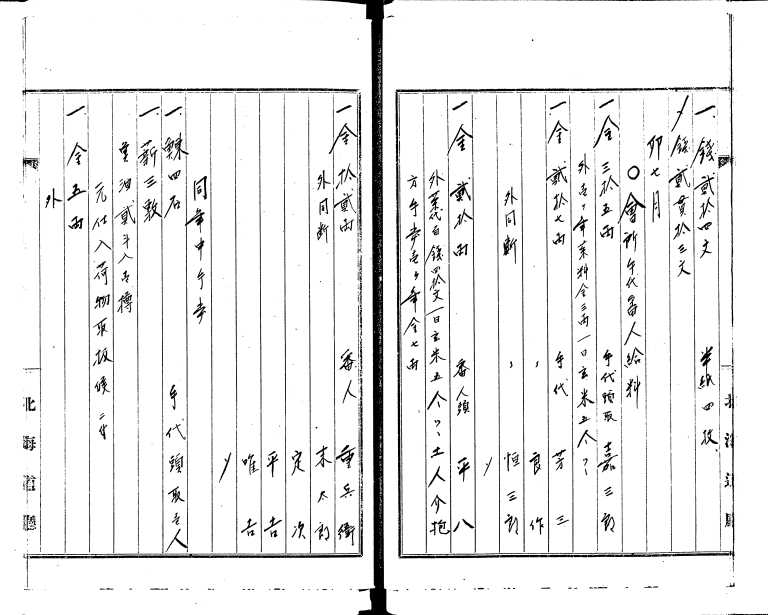 一 錢貳拾四文 半紙四枚
〆錢貳貫拾三文
卯七月
○會所手代番人給料
一 金三拾五両 手代頭取 嘉三郎
外壱ヶ年菜料金三両一日玄米五合ツヽ
一 金貳拾七両 手代 芳三
〃 良作
外同断 〃 恒三郎
〆
一 金貳拾両 番人頭 平八
外菜代白錢四拾文一日玄米五合ツヽ土人介抱
方手当壱ヶ年金七両
一 金拾貳両 番人 重兵衛
外同断 末太郎
定次
平吉
唯吉
〆
同年中手当
一 鯡四石 手代頭取壱人
一 薪三敷
重油貳斗入壱樽
元仕入荷物取扱候ニ付
一 金五両
外
北海道廳
北海道廳